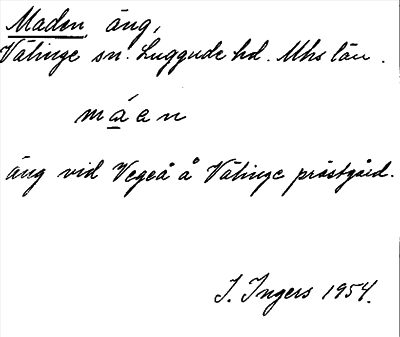 Maden, äng,
Välinge sn. Luggude hd. Mhs län.
máen
äng vid Vegeå å Välinge prästgård.
I. Ingers 1954.